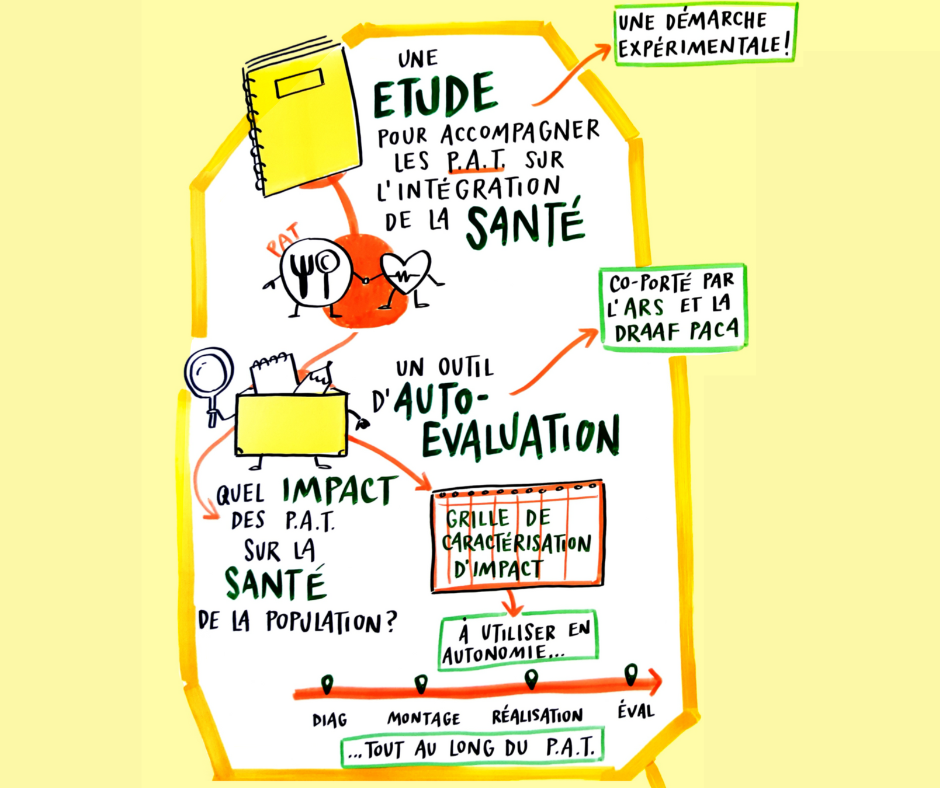 UNE DÉMARCHE
EXPÉRIMENTALE!
UNE
ETUDE
POUR ACCOMPAGNER
LES P.A.T. SUR
L'INTÉGRATION
DE LA SANTÉ
PAT
CO-PORTÉ PAR
L'ARS ET LA
DRAAF PACA
UN OUTIL
D'AUTO-
EVALUATION
QUEL IMPACT
DES P.A.T.
SUR LA
SANTÉ
DE LA POPULATION?
GRILLE DE
CARACTÉRISATION
D'IMPACT
À UTILISER EN
AUTONOMIE...
DIAG MONTAGE RÉALISATION ÉVAL
...TOUT AU LONG DU P.A.T.